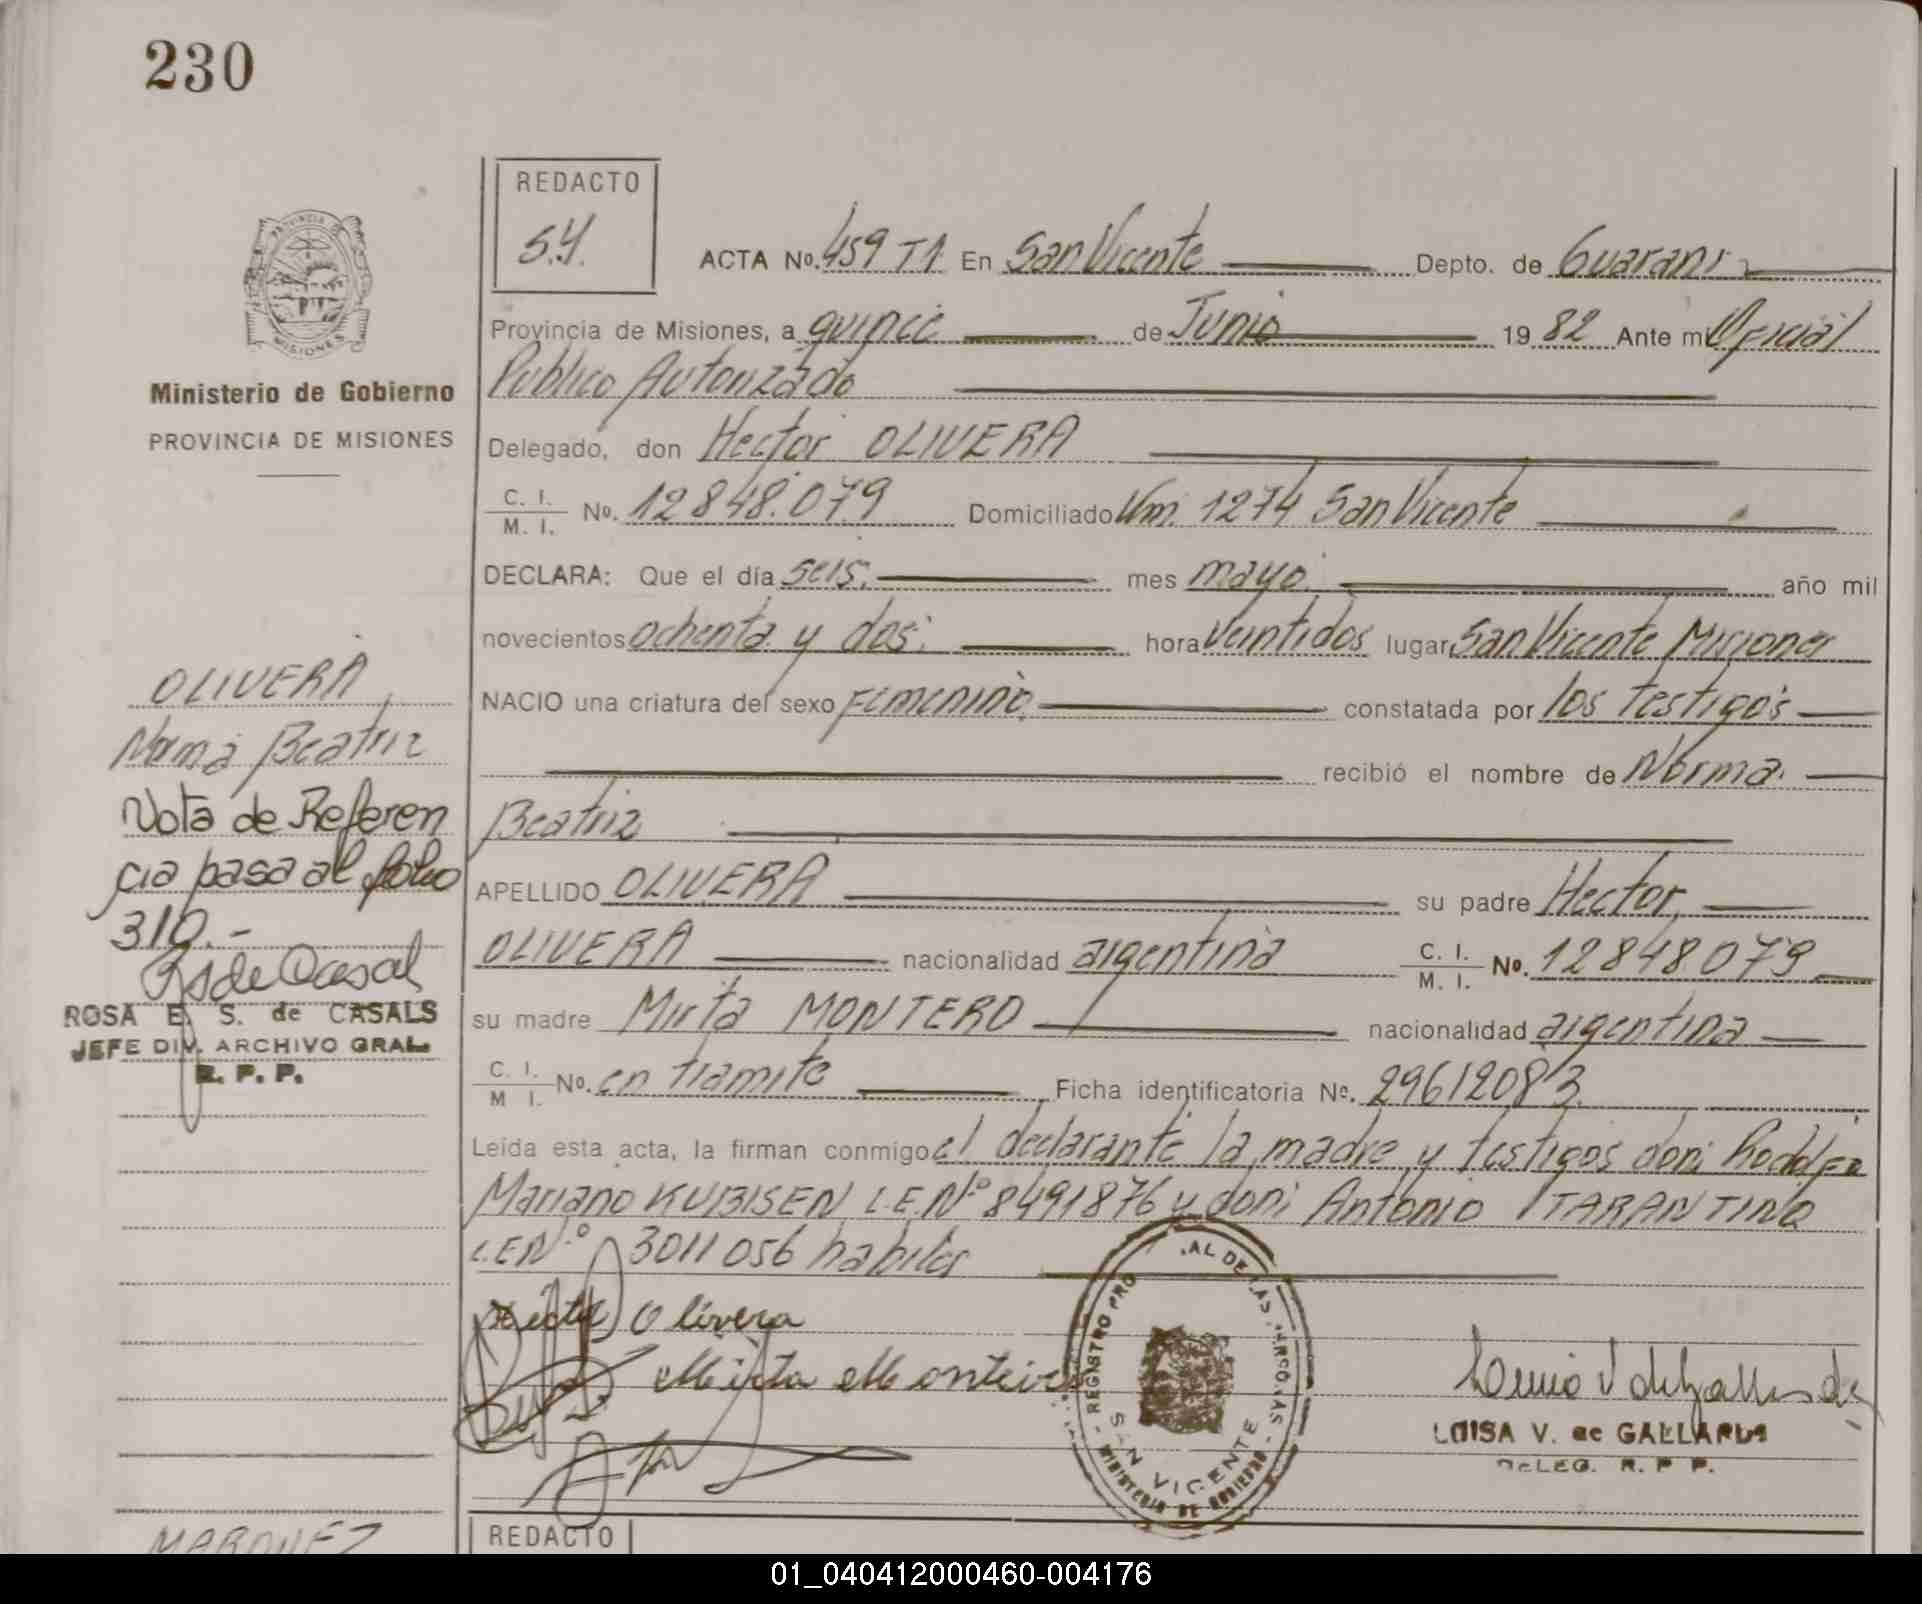 230
REDACTO
S.Y.
ACTA No. 459 T1 En San Vicente Depto. de Guarani
Provincia de Misiones, a quince de Junio 19 82 Ante mi Oficial
Publico Autorizado
Delegado, don Hector OLIVERA
C. I. M. I. No. 12848.079 Domiciliado Km. 1274 San Vicente
DECLARA: Que el día seis. mes mayo. año mil
novecientos ochenta y dos. hora veintidos lugar San Vicente Misiones
NACIO una criatura del sexo Femenino. constatada por los testigos
recibió el nombre de Norma.
Beatriz
APELLIDO OLIVERA su padre Hector
OLIVERA nacionalidad argentina C. I. M. I. No. 12848.079
su madre Mirta MONTERO nacionalidad argentina
C. I. M I. No. en tramite Ficha identificatoria No. 29612083.
Leída esta acta, la firman conmigo el declarante la madre y testigos don: Rodolfo
Mariano KUBISEN L.E.Nº 8491876 y don: Antonio TARANTINO
L.E.Nº 3011056 habiles
Olivera
Mirta Monteiro
REGISTRO PRO AL DE LAS PERSONAS
SAN VICENTE
MINISTERIO DE GOBIERNO
LUISA V. de GALLARDO
DELEG. R. P. P.
PROVINCIA DE
MISIONES
Ministerio de Gobierno
PROVINCIA DE MISIONES
OLIVERA
Norma Beatriz
Nota de Referen
cia pasa al folio
310.-
Rs de Casal
ROSA E. S. de CASALS
JEFE DIV. ARCHIVO GRAL.
R. P. P.
MARQUEZ
REDACTO
01_040412000460-004176